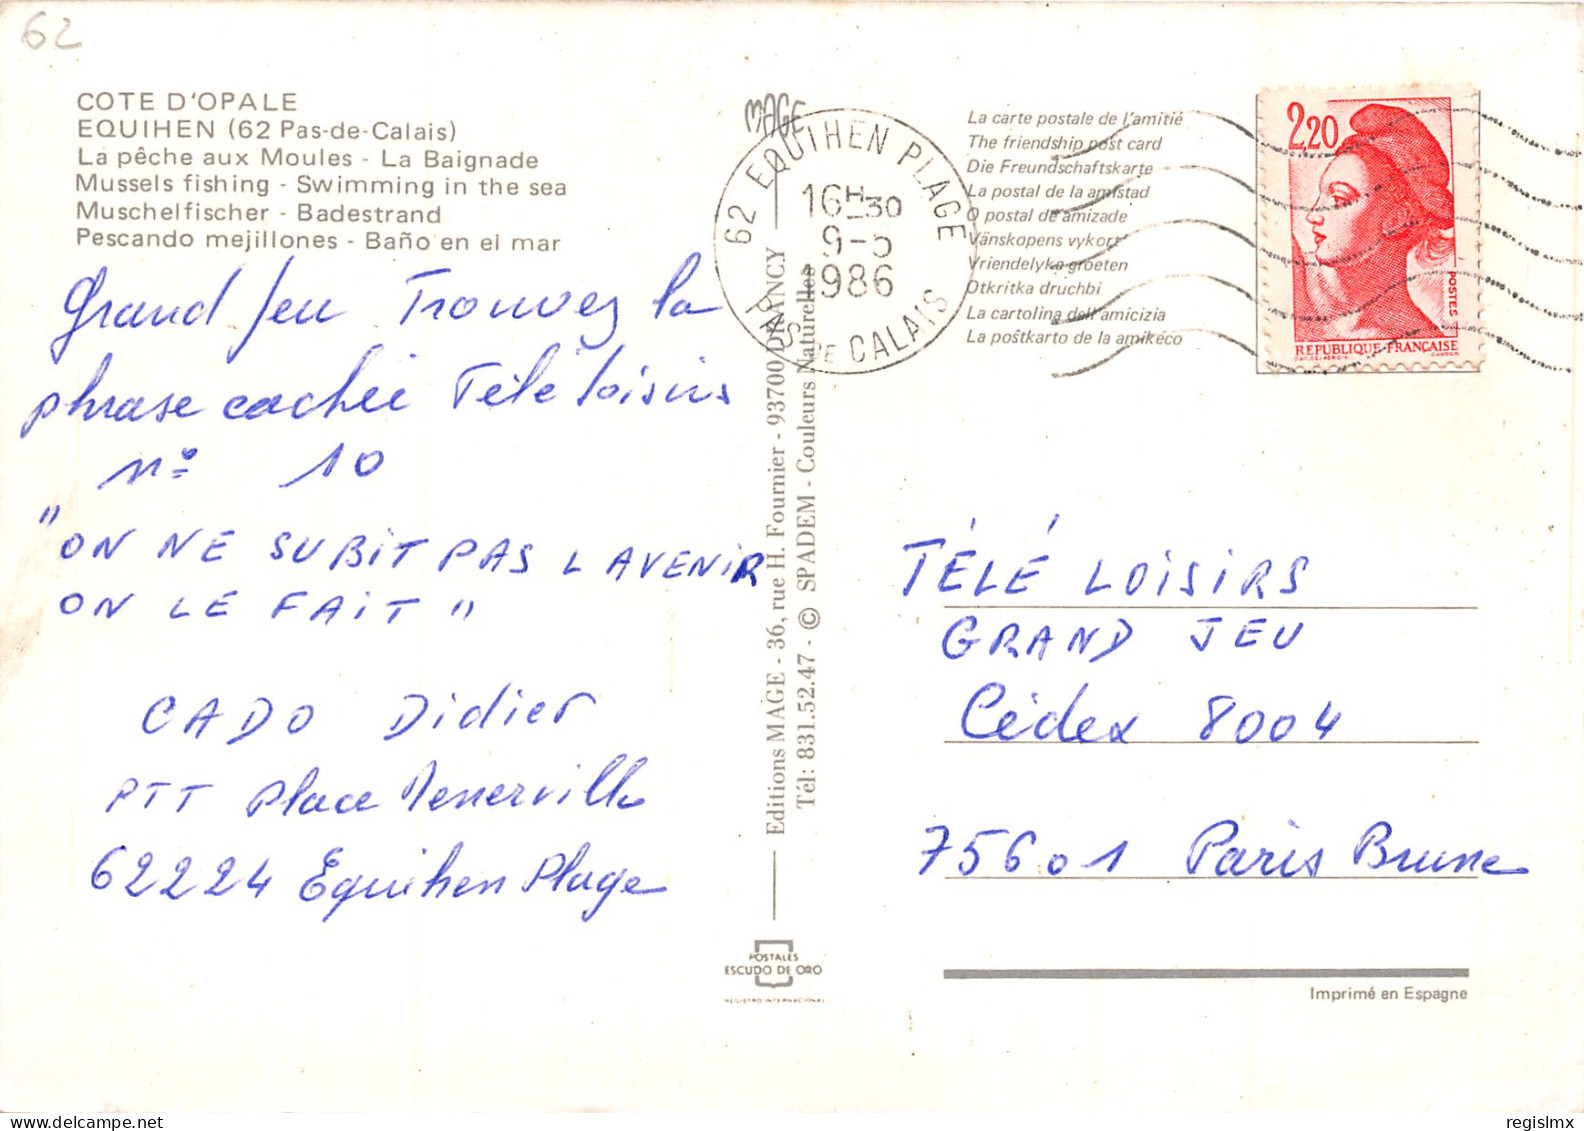 62
COTE D'OPALE
EQUIHEN (62 Pas-de-Calais)
La pêche aux Moules - La Baignade
Mussels fishing - Swimming in the sea
Muschelfischer - Badestrand
Pescando mejillones - Baño en el mar
Grand Jeu Trouvez la
phrase cachée Télé loisirs
n° 10
"ON NE SUBIT PAS L AVENIR
ON LE FAIT"
CADO Didier
PTT Place
62224 Equihen Plage
MAGE
Editions MAGE - 36, rue H. Fournier - 93700 DRANCY
Tél: 831.52.47 - © SPADEM - Couleurs Naturelles
POSTALES
ESCUDO DE ORO
REGISTRO INTERNACIONAL
62 EQUIHEN PLAGE
16H30
9-5
1986
PAS DE CALAIS
La carte postale de l'amitié
The friendship post card
Die Freundschaftskarte
La postal de la amistad
O postal de amizade
Vänskopens vykort
Vriendelyke groeten
Otkritka druchbi
La cartolina dell'amicizia
La poŝtkarto de la amikeco
2,20
POSTES
REPUBLIQUE FRANÇAISE
TÉLÉ LOISIRS
GRAND JEU
Cédex 8004
75601 Paris Brune
Imprimé en Espagne
delcampe.net
regislmx